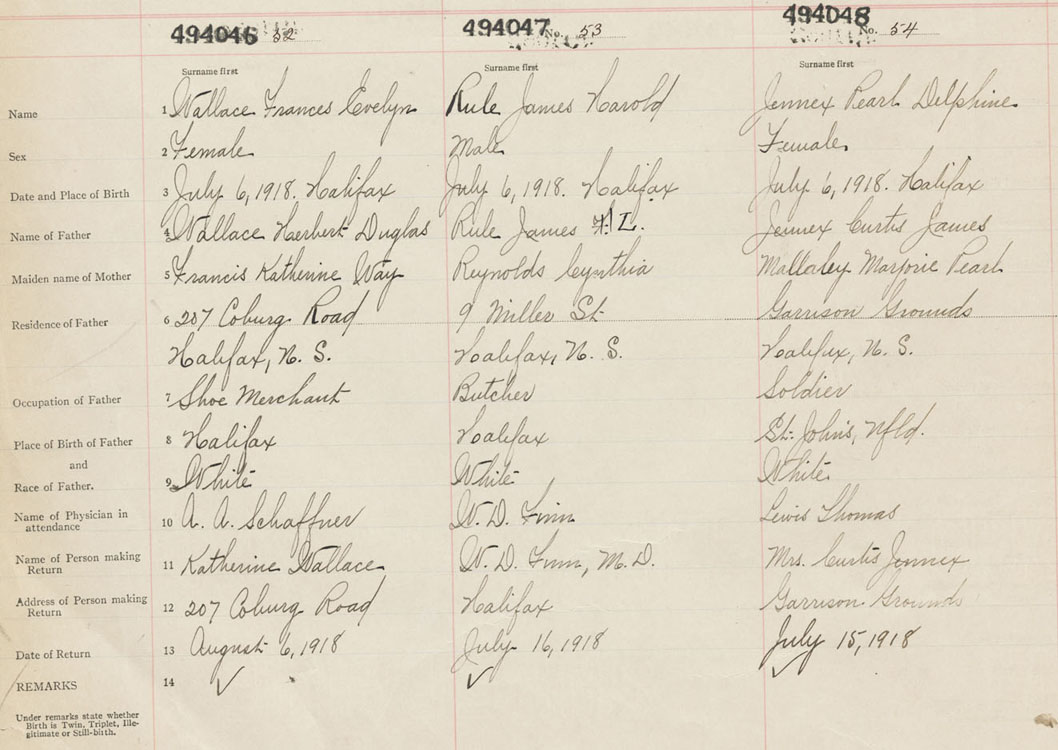 494046 52 494047 No. 53 494048 No. 54
Surname first Surname first Surname first
Name 1 Wallace Frances Evelyn Rule James Harold Jennex Pearl Delphine
Sex 2 Female Male Female
Date and Place of Birth 3 July 6, 1918. Halifax July 6, 1918. Halifax July 6, 1918. Halifax
Name of Father 4 Wallace Herbert Duglas Rule James H. L. Jennex Curtis James
Maiden name of Mother 5 Francis Katherine Way Reynolds Cynthia Mallaley Marjorie Pearl
Residence of Father 6 207 Coburg Road 9 Miller St. Garrison Grounds
Halifax, N. S. Halifax, N. S. Halifax, N. S.
Occupation of Father 7 Shoe Merchant Butcher Soldier
Place of Birth of Father 8 Halifax Halifax St. Johns, Nfld.
and
Race of Father. 9 White White White
Name of Physician in attendance 10 A. A. Schaffner W. D. Finn Lewis Thomas
Name of Person making Return 11 Katherine Wallace W. D. Finn, M. D. Mrs. Curtis Jennex
Address of Person making Return 12 207 Coburg Road Halifax Garrison Grounds
Date of Return 13 August 6, 1918 July 16, 1918 July 15, 1918
REMARKS 14 ✓ ✓ ✓
Under remarks state whether
Birth is Twin, Triplet, Ille-
gitimate or Still-birth.